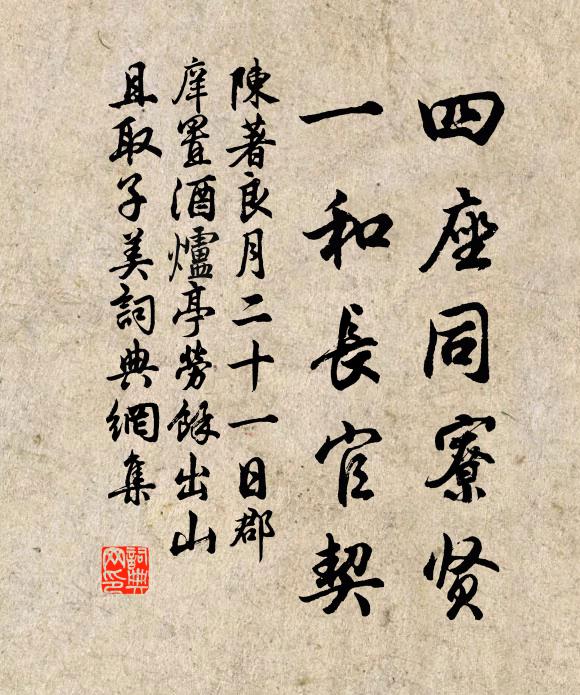 四座同寮贤
一和長官契
陳著良月二十一日郡
庠置酒爐亭勞餘出山
且取子美詞典網集
詞典網印